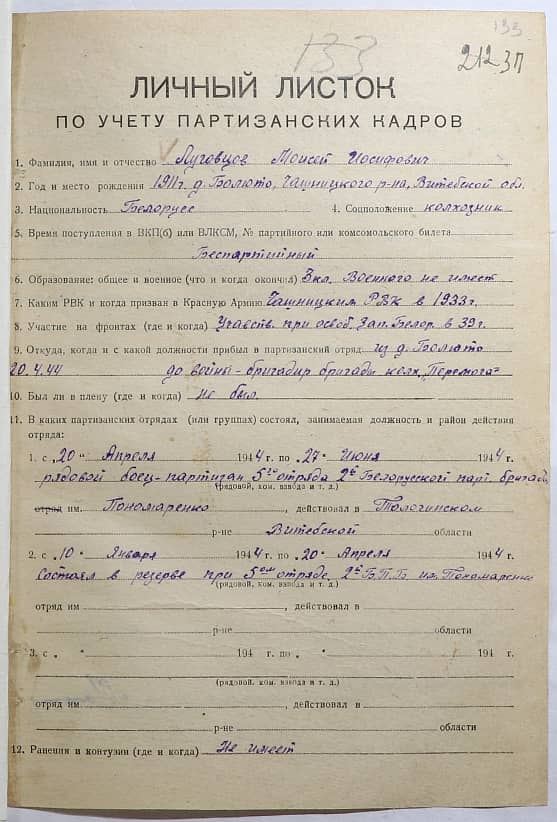 133
133
212 зп
ЛИЧНЫЙ ЛИСТОК
ПО УЧЕТУ ПАРТИЗАНСКИХ КАДРОВ
1. Фамилия, имя и отчество Луговцов Моисей Иосифович
2. Год и место рождения 1911г. д. Болюто, Чашницкого р-на, Витебской обл.
3. Национальность Белорусс 4. Соцположение колхозник
5. Время поступления в ВКП(б) или ВЛКСМ, № партийного или комсомольского билета
Беспартийный
6. Образование: общее и военное (что и когда окончил) 3 кл. Военного не имеет
7. Каким РВК и когда призван в Красную Армию Чашницким РВК в 1933 г.
8. Участие на фронтах (где и когда) Участв. при освоб. Зап. Белор. в 39 г.
9. Откуда, когда и с какой должности прибыл в партизанский отряд из д. Болюто
20.4.44 до войны - бригадир бригады колх. "Перемога"
10. Был ли в плену (где и когда) не был.
11. В каких партизанских отрядах (или группах) состоял, занимаемая должность и район действия
отряда:
1. с „20“ Апреля 1944 г. по „27“ Июня 1944 г.
рядовой боец-партизан 5го отряда 2й Белорусской парт. бригады
(рядовой, ком. взвода и т. д.)
отряд им. Пономаренко, действовал в Толочинском
р-не Витебской области
2. с „10“ Января 1944 г. по „20“ Апреля 1944 г.
Состоял в резерве при 5ом отряде, 2й Б.П.Б им. Пономаренко
(рядовой, ком. взвода и т. д.)
отряд им, действовал в
р-не области
3. с „ “ 194 г. по „ “ 194 г.
(рядовой, ком. взвода и т. д.)
отряд им, действовал в
р-не области
12. Ранения и контузии (где и когда) Не имеет